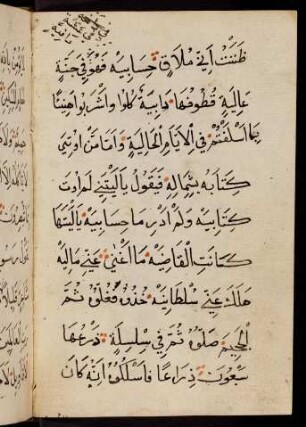 ظننت اني ملاق حسابيه فهو في جنة
عالية قطوفها دانية كلوا واشربوا هنيئا
بما اسلفتم في الايام الخالية واما من اوتي
كتابه بشماله فيقول يا ليتني لم اوت
كتابيه ولم ادر ما حسابيه يا ليتها
كانت القاضية ما اغنى عني ماليه
هلك عني سلطانيه خذوه فغلوه ثم
الجحيم صلوه ثم في سلسلة ذرعها
سبعون ذراعا فاسلكوه انه كان